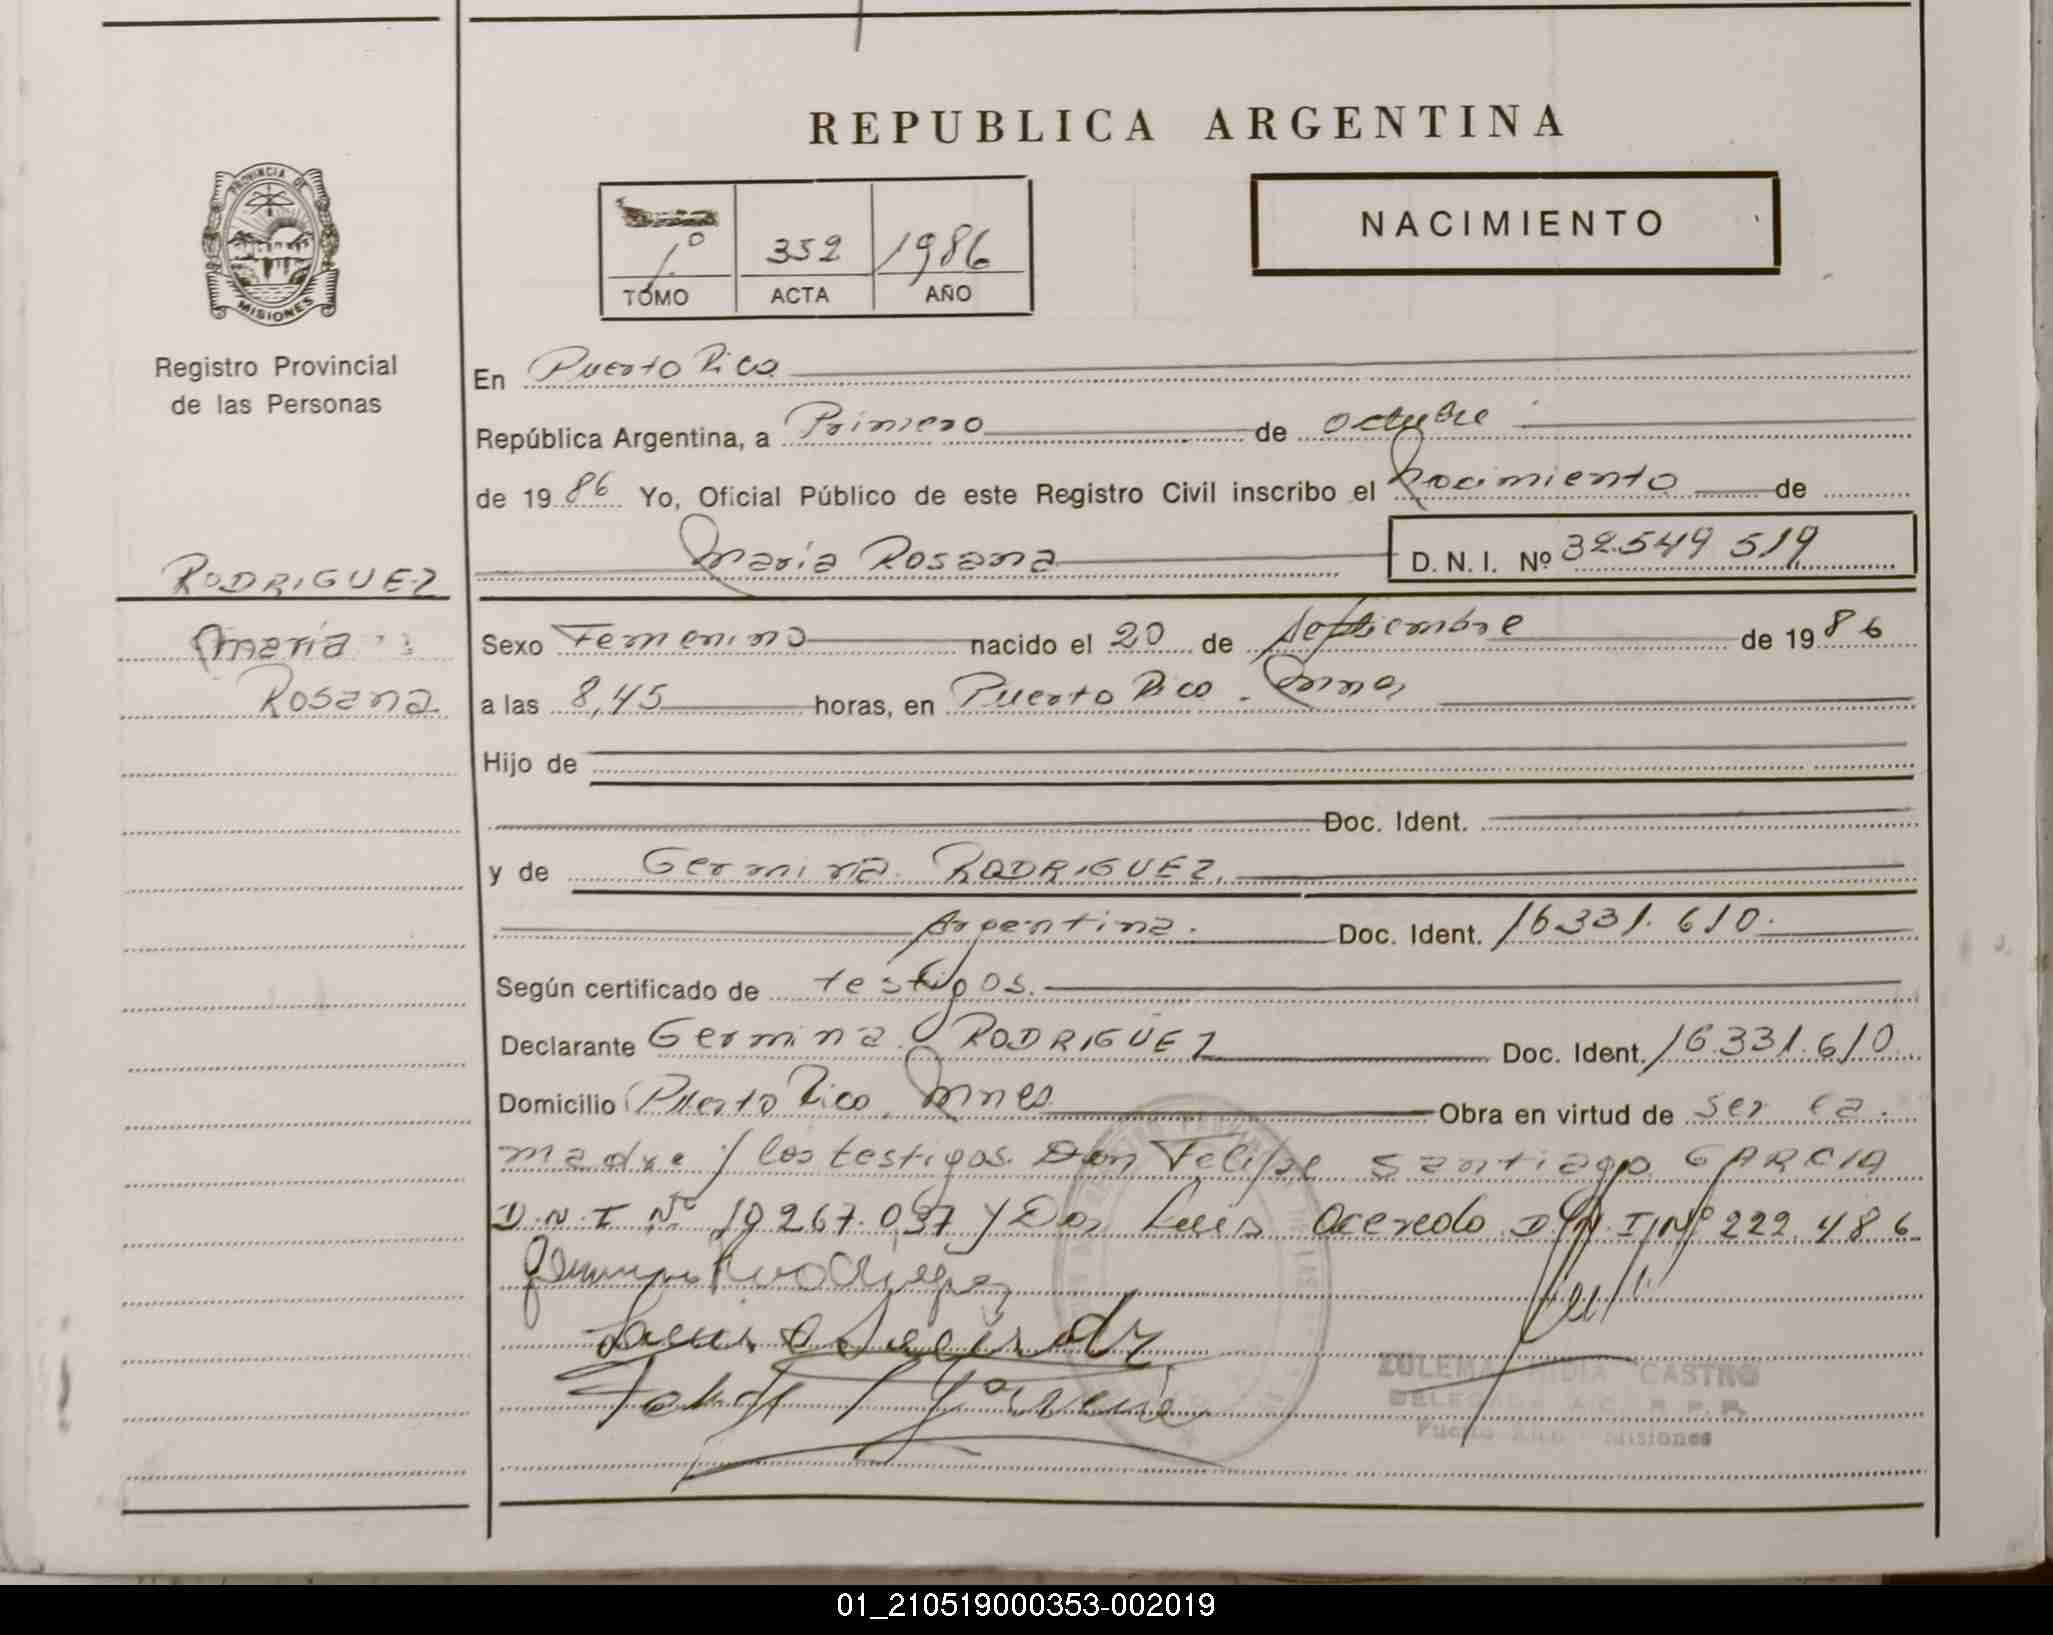 REPUBLICA ARGENTINA
PROVINCIA DE
MISIONES
Registro Provincial
de las Personas
1º 352 1986
TOMO ACTA AÑO
NACIMIENTO
En Puerto Rico
República Argentina, a Primero de octubre
de 1986 Yo, Oficial Público de este Registro Civil inscribo el Nacimiento de
Maria Rosana D. N. I. Nº 32.549 519
RODRIGUEZ
Maria
Rosana
Sexo Femenino nacido el 20 de septiembre de 1986
a las 8,45 horas, en Puerto Rico - Mnes
Hijo de
Doc. Ident.
y de Germina RODRIGUEZ.
Argentina. Doc. Ident. 16.331.610.
Según certificado de testigos.
Declarante Germina RODRIGUEZ Doc. Ident. 16.331.610
Domicilio Puerto Rico Mnes Obra en virtud de ser la
madre y los testigos Don Felipe Santiago GARCIA
D.N.I Nº 10.267.037 y Don Luis Acevedo D.N.I Nº 222.486
ZULEMA CASTRO
Puerto Rico Misiones
01_210519000353-002019